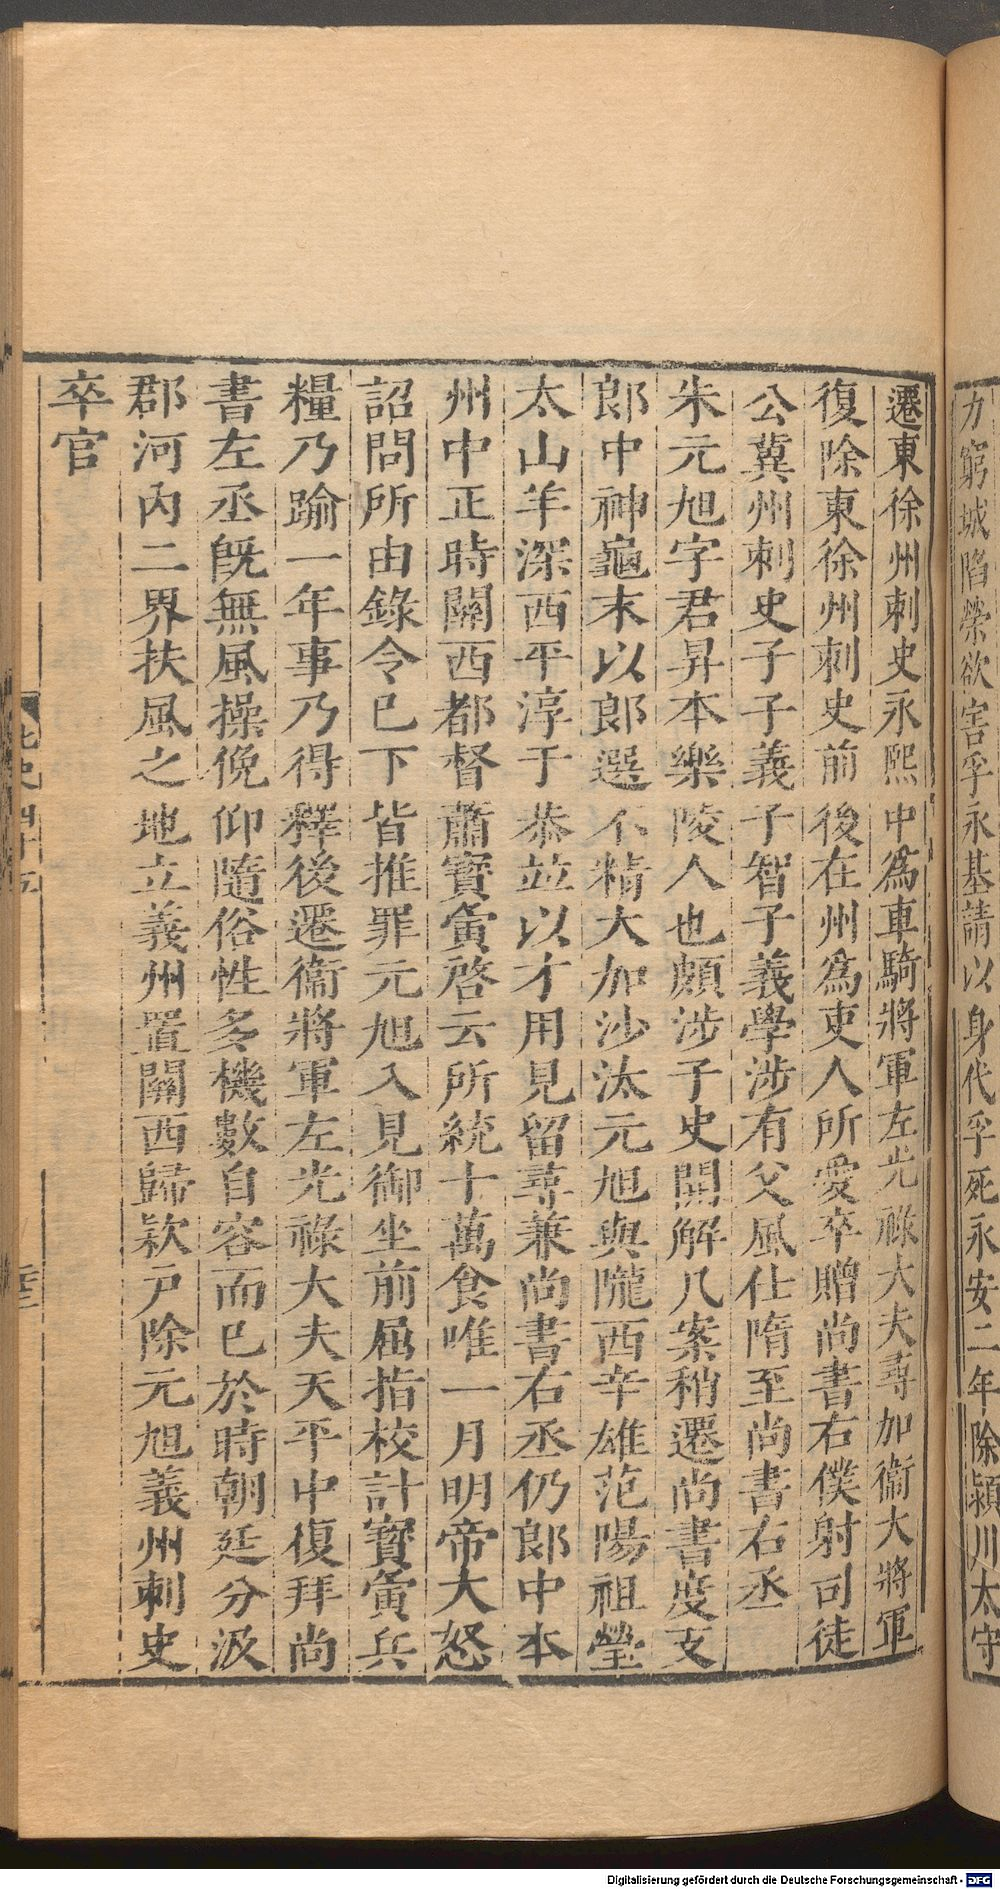 力窮城陷榮欲害孚永基請以身代孚死永安二年除潁川太守
遷東徐州刺史永熙中爲車騎將軍左光祿大夫尋加衞大將軍
復除東徐州刺史前後在州爲吏人所愛卒贈尚書右僕射司徒
公冀州刺史子子義子智子義學涉有父風仕隋至尚書右丞
朱元旭字君昇本樂陵人也頗涉子史開解几案稍遷尚書度支
郎中神龜末以郎選不精大加沙汰元旭與隴西辛雄范陽祖瑩
太山羊深西平淳于恭並以才用見留尋兼尚書右丞仍郎中本
州中正時關西都督蕭寶夤啓云所統十萬食唯一月明帝大怒
詔問所由錄令已下皆推罪元旭入見御坐前屈指校計寶夤兵
糧乃踰一年事乃得釋後遷衞將軍左光祿大夫天平中復拜尚
書左丞旣無風操俛仰隨俗性多機數自容而已於時朝廷分汲
郡河內二界扶風之地立義州置關西歸款戶除元旭義州刺史
卒官
北史四十五
Digitalisierung gefördert durch die Deutsche Forschungsgemeinschaft - DFG